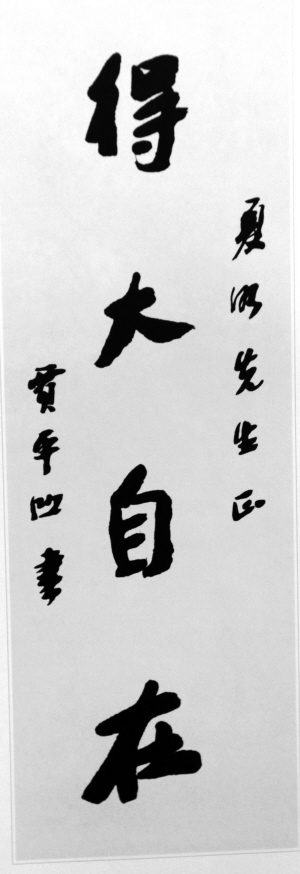 夏明先生正
得大自在
贾平凹书